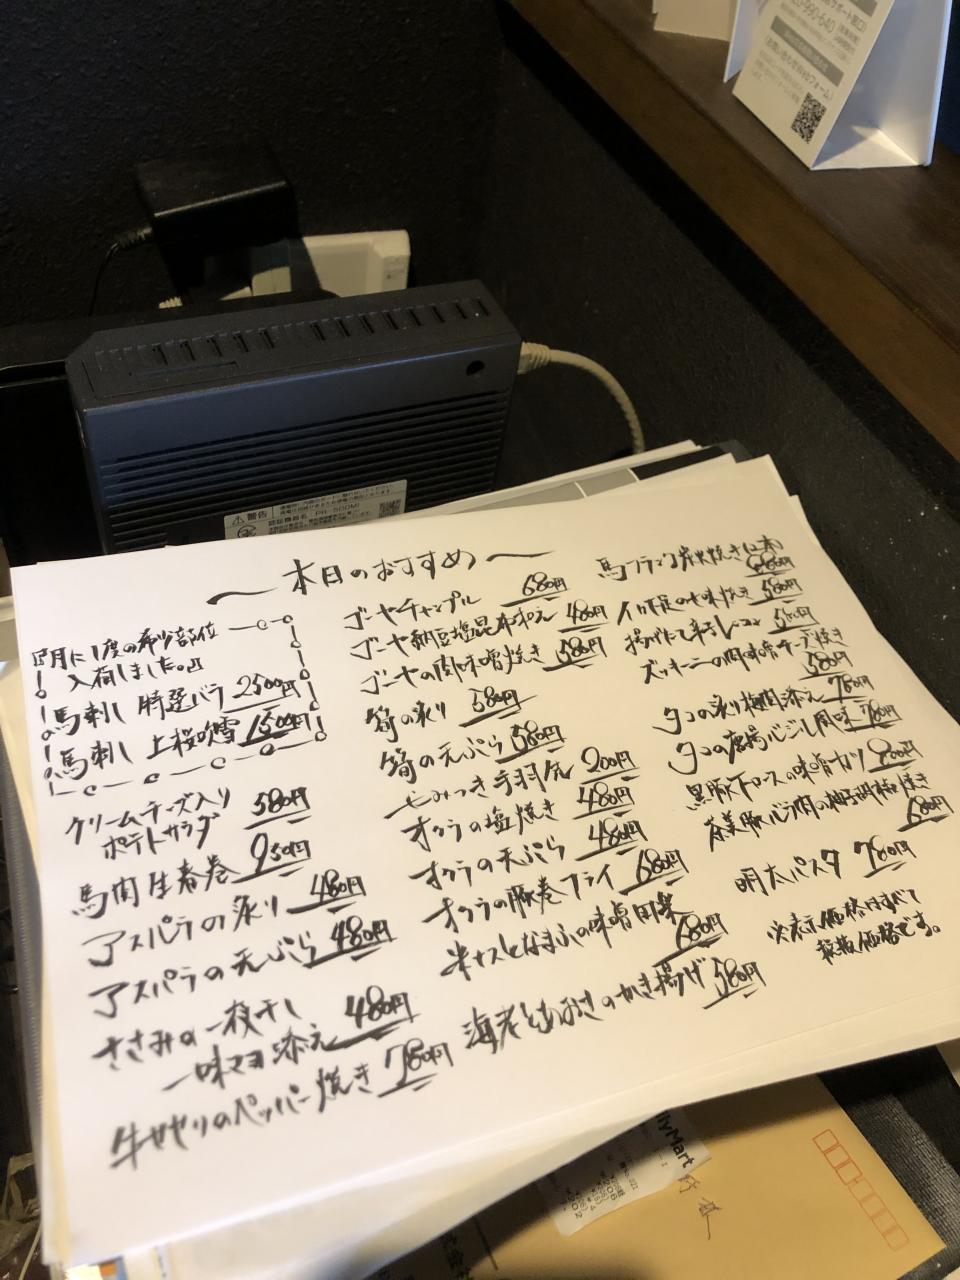 本日のおすすめ
月に1度の希少部位
入荷しました。
馬刺し 特選バラ 2500円
馬刺し 上桜吹雪 1500円
クリームチーズ入り
ポテトサラダ 580円
馬肉生春巻 950円
アスパラの炙り 480円
アスパラの天ぷら 480円
ささみの一枚干し
一味マヨ添え 480円
牛ヤゲンのペッパー焼き 780円
ゴーヤチャンプル 680円
ゴーヤ納豆塩昆布和え 480円
ゴーヤの肉味噌焼き 580円
筍の炙り 580円
筍の天ぷら 580円
もみつき手羽先 200円
オクラの塩焼き 480円
オクラの天ぷら 480円
オクラの豚巻フライ 680円
米ナスとなまふの味噌田楽
680円
海老とあおさのかき揚げ 580円
馬フランク炭火焼き(2本)
680円
イカ下足の七味焼き 580円
揚げたて辛子レンコン 580円
ズッキーニの肉味噌チーズ焼き
580円
タコの炙り梅肉添え 780円
タコの唐揚バジル風味 780円
黒豚下ロースの味噌カツ 900円
茶美豚バラ肉の柚子胡椒焼き
680円
明太パスタ 780円
※表示価格はすべて
税抜価格です。
警告
認証機器名 PR-500MI
サポート窓口)
-990-640
(お問い合わせWebフォーム)
lyMart